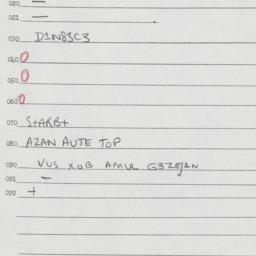 020 —
021 —
030 D1N83C3
040 0
050 0
060 0
070 S+ARB+
080 AZAN AUTE TOP
090 VUS XOB AMUL
091 —
092 +